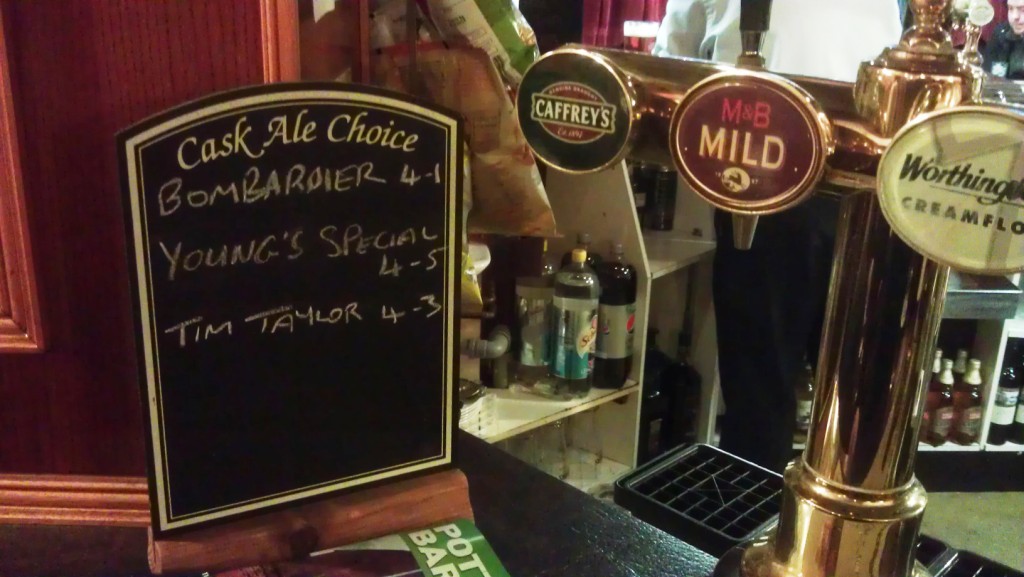 Cask Ale Choice
BOMBARDIER 4-1
YOUNG'S SPECIAL
4-5
TIM TAYLOR 4-3
CAFFREY'S
M&B
MILD
Worthing
CREAMFLO
POT
BAR